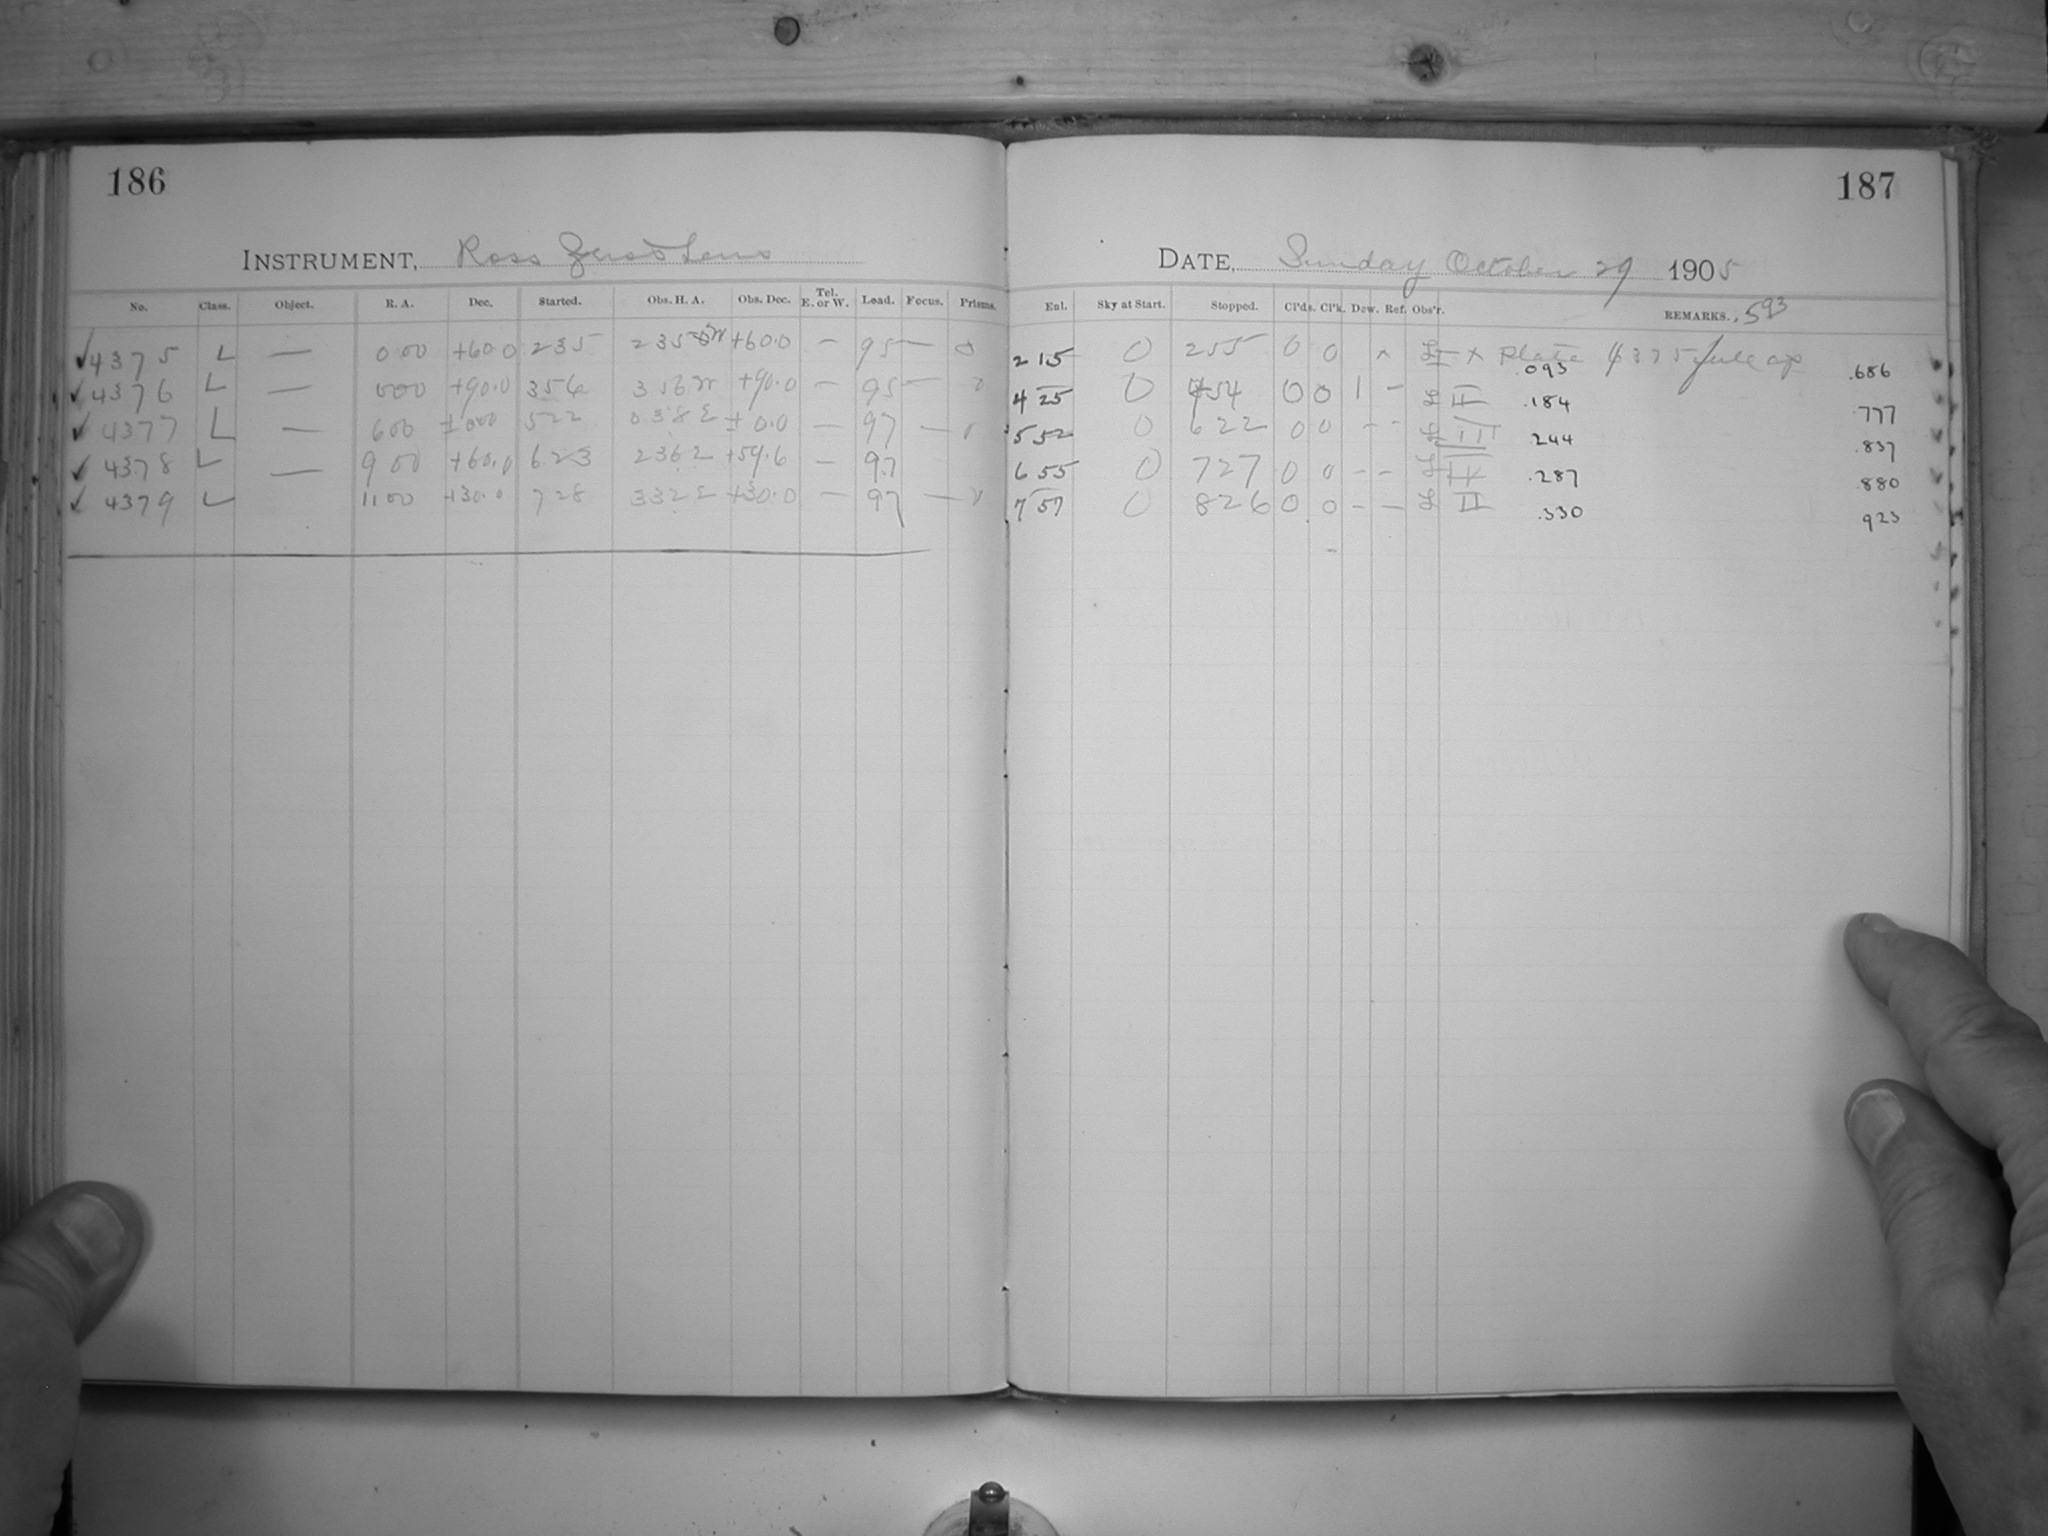 186
INSTRUMENT, Ross Zeiss Lens
No. Class. Object. R. A. Dec. Started. Obs. H. A. Obs. Dec. Tel. E. or W. Lead. Focus. Prisms.
✓4375 L — 0 00 +60.0 235 235 W +60.0 — 95 — 0
✓4376 L — 000 +90.0 356 356W +90.0 — 95 — 0
✓4377 L — 600 ±000 522 038 E ±0.0 — 97 —
✓4378 L — 9 00 +60.0 623 236 E +59.6 — 97
✓4379 L 11 00 +30.0 728 332 E +30.0 — 97 — 0
187
DATE, Sunday October 29 1905
Enl. Sky at Start. Stopped. Cl'ds. Cl'k. Dew. Ref. Obs'r. REMARKS. .593
215 0 255 0 0 × L I × Plate 4375 full ap .093 .686
425 0 454 0 0 1 – L II .184 .777
552 0 622 0 0 - - L III .244 .837
655 0 727 0 0 - - L IV .287 .880
757 0 826 0 0 - - L II .330 923